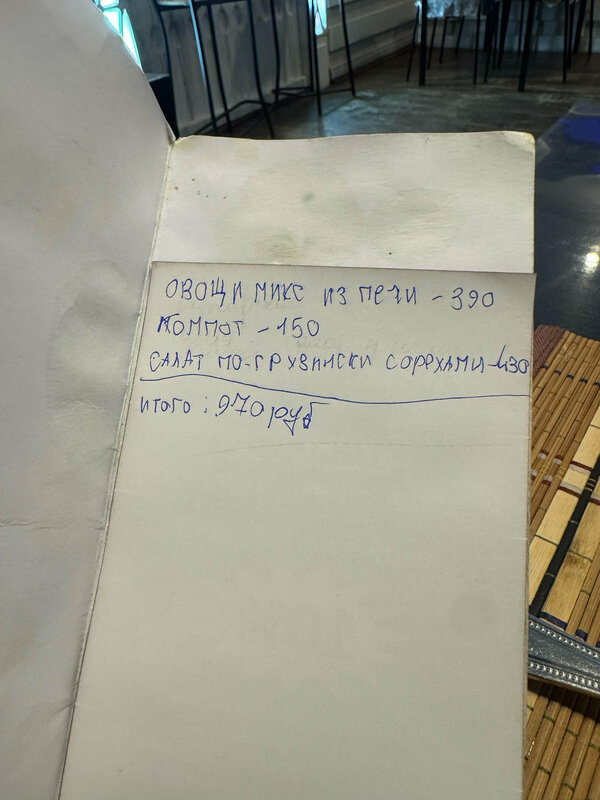 ОВОЩИ МИКС ИЗ ПЕЧИ - 390
КОМПОТ - 150
САЛАТ ПО-ГРУЗИНСКИ С ОРЕХАМИ - 430
ИТОГО : 970 руб